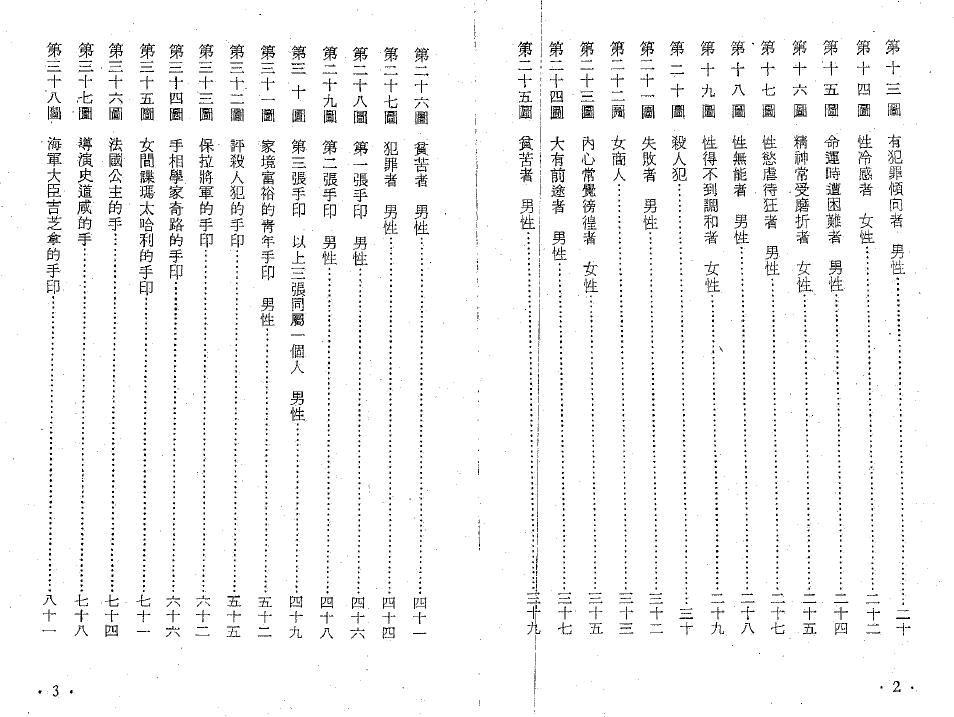 第十三圖　有犯罪傾向者　男性……二十
第十四圖　性冷感者　女性……二十二
第十五圖　命運時遭困難者　男性……二十四
第十六圖　精神常受磨折者　女性……二十五
第十七圖　性慾虐待狂者　男性……二十七
第十八圖　性無能者　男性……二十八
第十九圖　性得不到調和者　女性……二十九
第二十圖　殺人犯……三十
第二十一圖　失敗者　男性……三十二
第二十二圖　女商人……三十三
第二十三圖　內心常覺徬徨者　女性……三十五
第二十四圖　大有前途者　男性……三十七
第二十五圖　貧苦者　男性……三十九
· 2 ·
第二十六圖　貧苦者　男性……四十一
第二十七圖　犯罪者　男性……四十四
第二十八圖　第一張手印　男性……四十六
第二十九圖　第二張手印　男性……四十八
第三十圖　第三張手印　以上三張同屬一個人　男性……四十九
第三十一圖　家境富裕的青年手印　男性……五十二
第三十二圖　評殺人犯的手印……五十五
第三十三圖　保拉將軍的手印……六十二
第三十四圖　手相學家奇路的手印……六十六
第三十五圖　女間諜瑪太哈利的手印……七十一
第三十六圖　法國公主的手……七十四
第三十七圖　導演史道咸的手……七十八
第三十八圖　海軍大臣吉芝拿的手印……八十一
· 3 ·